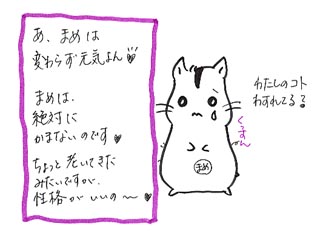 あ、まめは
変わらず元気よん
まめは、
絶対に
かまないのです♥
ちょっと老いてきた
みたいですが、
性格がいいの〜♥
わたしのコト
わすれてる?
くすん
まめ